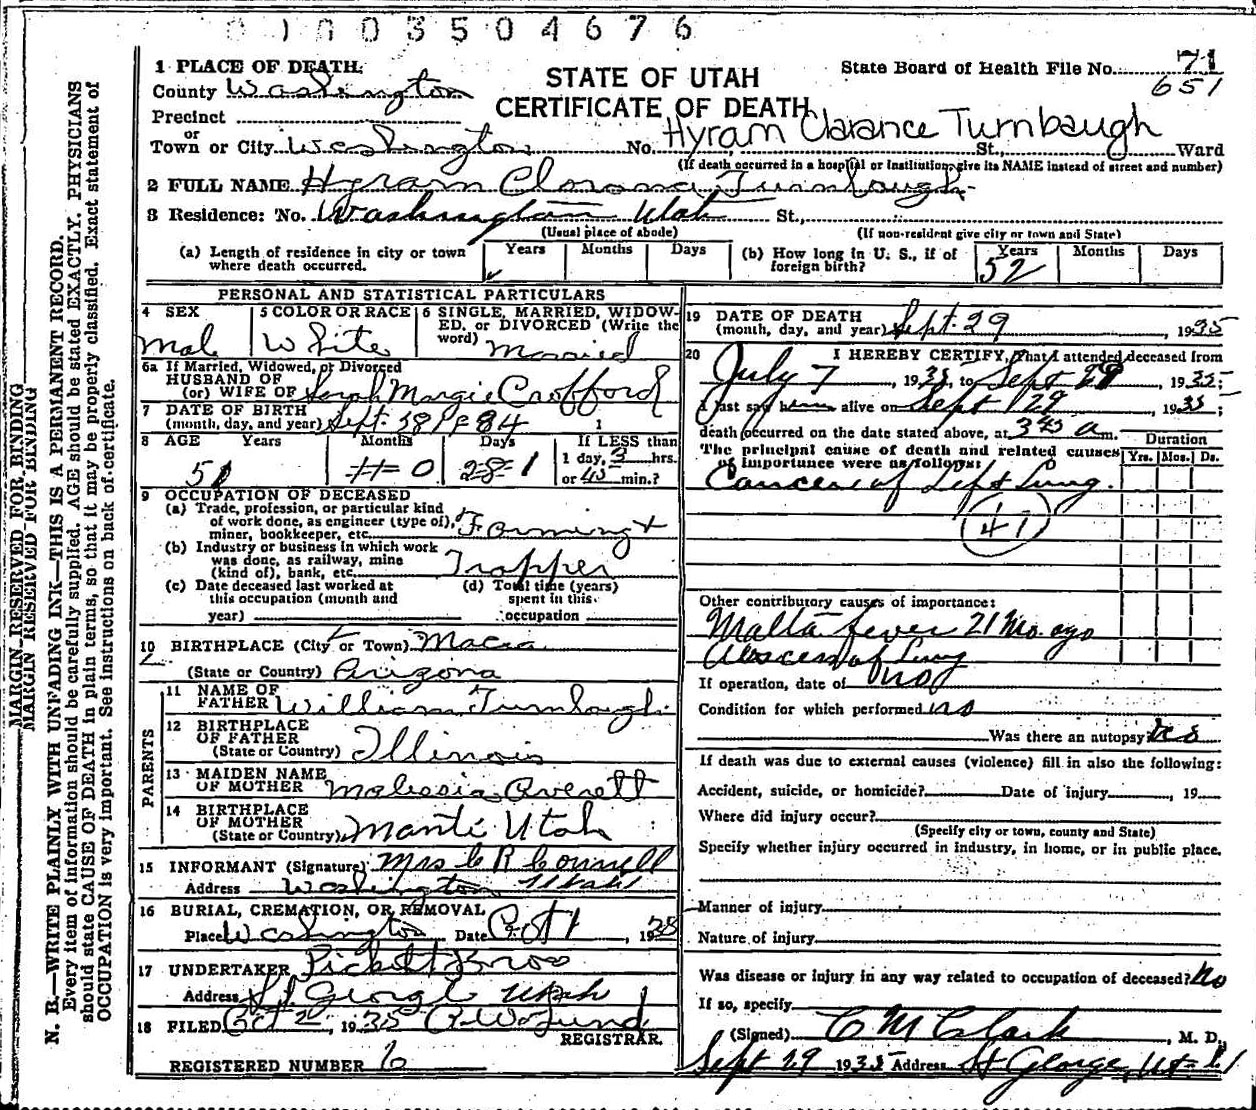 01003504676
MARGIN RESERVED FOR BINDING
MARGIN RESERVED FOR BINDING
N. B.—WRITE PLAINLY WITH UNFADING INK—THIS IS A PERMANENT RECORD.
Every item of information should be carefully supplied. AGE should be stated EXACTLY. PHYSICIANS
should state CAUSE OF DEATH in plain terms, so that it may be properly classified. Exact statement of
OCCUPATION is very important. See instructions on back of certificate.
1 PLACE OF DEATH:
County Washington
Precinct
or
Town or City Washington
STATE OF UTAH
CERTIFICATE OF DEATH
State Board of Health File No. 71
651
Hyram Clarance Turnbaugh
No. St., Ward
(If death occurred in a hospital or institution, give its NAME instead of street and number)
2 FULL NAME Hyram Turnbaugh
3 Residence: No. Washington Utah St.,
(Usual place of abode) (If non-resident give city or town and State)
(a) Length of residence in city or town where death occurred. Years Months Days
(b) How long in U. S., if of foreign birth? Years 52 Months Days
PERSONAL AND STATISTICAL PARTICULARS
4 SEX Mal
5 COLOR OR RACE White
6 SINGLE, MARRIED, WIDOWED, or DIVORCED (Write the word) Married
6a If Married, Widowed, or Divorced
HUSBAND OF
(or) WIFE OF Sarah Margie Crofford
7 DATE OF BIRTH
(month, day, and year) Sept. 1884
8 AGE Years 51 Months 0 Days 1 If LESS than
1 day, 3 hrs.
or 45 min.?
9 OCCUPATION OF DECEASED
(a) Trade, profession, or particular kind
of work done, as engineer (type of),
miner, bookkeeper, etc. Farming +
(b) Industry or business in which work
was done, as railway, mine
(kind of), bank, etc. Trapper
(c) Date deceased last worked at
this occupation (month and
year)
(d) Total time (years)
spent in this
occupation
10 BIRTHPLACE (City or Town)
(State or Country) Arizona
PARENTS
11 NAME OF
FATHER William Turnbaugh
12 BIRTHPLACE
OF FATHER
(State or Country) Illinois
13 MAIDEN NAME
OF MOTHER Malissia Averett
14 BIRTHPLACE
OF MOTHER
(State or Country) Manti Utah
15 INFORMANT (Signature) Mrs C R Connell
Address Washington Utah
16 BURIAL, CREMATION, OR REMOVAL
Place Washington Date Oct 1, 1935
17 UNDERTAKER Pickett Bros
Address St George Utah
18 FILED Oct 2, 1935
REGISTRAR.
REGISTERED NUMBER 6
19 DATE OF DEATH
(month, day, and year) Sept. 29, 1935
20 I HEREBY CERTIFY, That I attended deceased from
July 7, 1935, to Sept 29, 1935;
I last saw him alive on Sept 29, 1935;
death occurred on the date stated above, at 345 a m.
The principal cause of death and related causes
of importance were as follows:
Duration
Yrs. Mos. Ds.
Cancer of Left Lung.
47
Other contributory causes of importance:
Malta fever 21 Mo. ago
Abscess of Lung
If operation, date of no
Condition for which performed no
Was there an autopsy?
If death was due to external causes (violence) fill in also the following:
Accident, suicide, or homicide? Date of injury , 19
Where did injury occur?
(Specify city or town, county and State)
Specify whether injury occurred in industry, in home, or in public place.
Manner of injury
Nature of injury
Was disease or injury in any way related to occupation of deceased? No
If so, specify
(Signed) C M Clark, M. D.
Sept 29 1935 Address St George, Utah